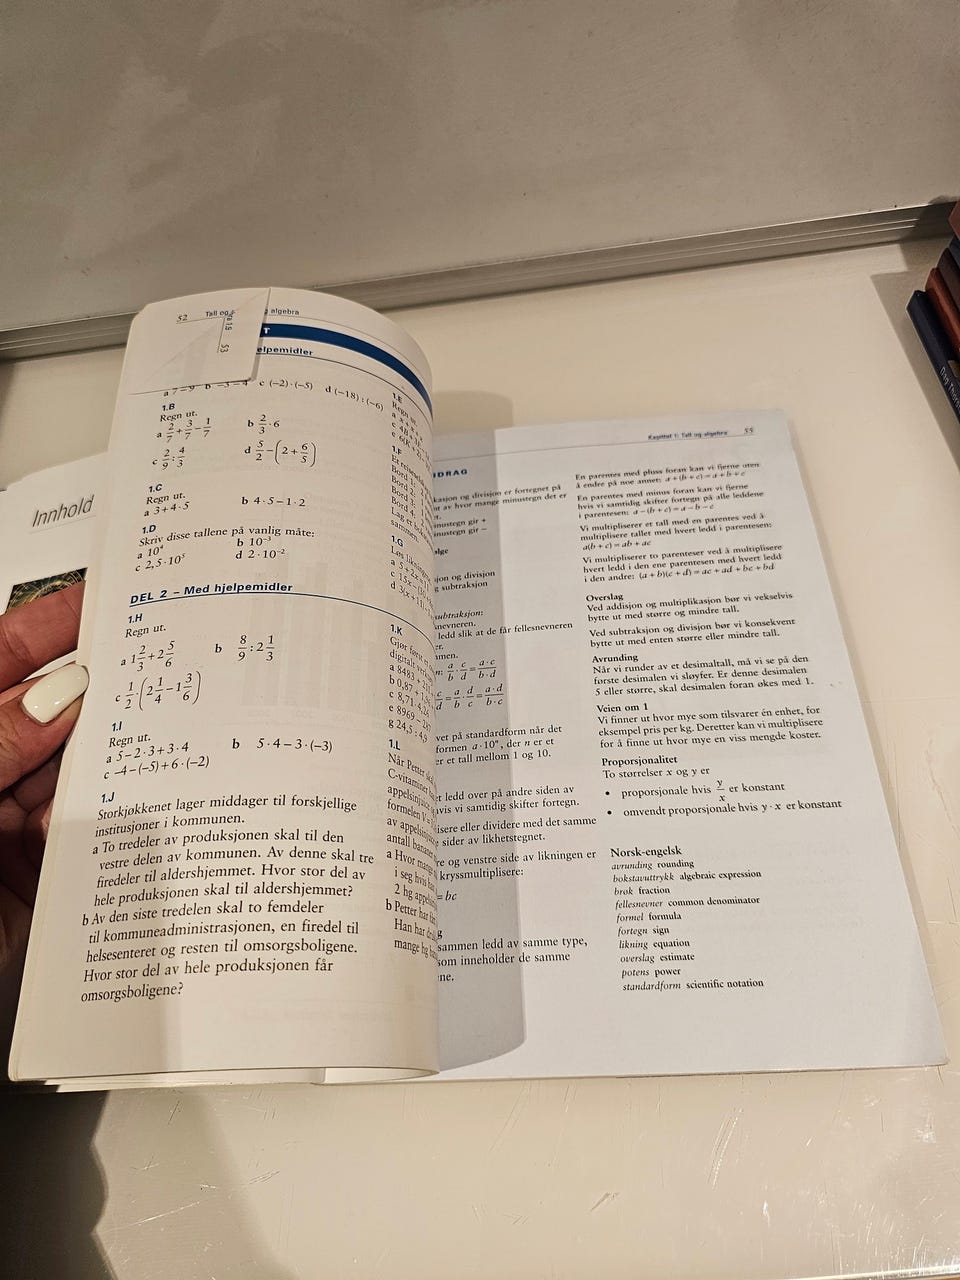 Innhold
52 Tall og
algebra
53
T
elpemidler
a 7 − 9 b −3 − 4 c (−2)·(−5) d (−18):(−6)
1.B
Regn ut.
a 2/7 + 3/7 − 1/7 b 2/3 · 6
c 2/9 : 4/3 d 5/2 − (2 + 6/5)
1.C
Regn ut.
a 3 + 4·5 b 4·5 − 1·2
1.D
Skriv disse tallene på vanlig måte:
a 10⁴ b 10⁻³
c 2,5·10⁵ d 2·10⁻²
DEL 2 – Med hjelpemidler
1.H
Regn ut.
a 1 2/3 + 2 5/6 b 8/9 : 2 1/3
c 1/2 · (2 1/4 − 1 3/6)
1.I
Regn ut.
a 5 − 2·3 + 3·4 b 5·4 − 3·(−3)
c −4 − (−5) + 6·(−2)
1.J
Storkjøkkenet lager middager til forskjellige
institusjoner i kommunen.
a To tredeler av produksjonen skal til den
vestre delen av kommunen. Av denne skal tre
firedeler til aldershjemmet. Hvor stor del av
hele produksjonen skal til aldershjemmet?
b Av den siste tredelen skal to femdeler
til kommuneadministrasjonen, en firedel til
helsesenteret og resten til omsorgsboligene.
Hvor stor del av hele produksjonen får
omsorgsboligene?
1.E
Regn ut.
1.F
Bord 1:
Bord 2:
Bord 3:
Bord 4:
Lag
sammen.
1.G
Løs
1.K
Gjør først
digitalt
a 8483
b 0,87
c 8,71·4,26
e 8969
g 24,5 : 4,9
1.L
Når Petter
C-vitaminer
appelsinjuice
formelen V =
av appelsinjuice
antall
a Hvor mange
i seg hvis han
2 hg
b Petter har
Han har
mange hg
DRAG
kasjon og divisjon er fortegnet på
av hvor mange minustegn det er
nustegn gir +
inustegn gir −
jon og divisjon
g subtraksjon
subtraksjon:
nevneren.
ledd slik at de får fellesnevneren
a/b · c/d = a·c/b·d
c/d = a/b · d/c = a·d/b·c
vet på standardform når det
formen a·10ⁿ, der n er et
er et tall mellom 1 og 10.
et ledd over på andre siden av
vis vi samtidig skifter fortegn.
isere eller dividere med det samme
sider av likhetstegnet.
re og venstre side av likningen er
kryssmultiplisere:
= bc
g
sammen ledd av samme type,
som inneholder de samme
ne.
Kapittel 1: Tall og algebra 55
En parentes med pluss foran kan vi fjerne uten
å endre på noe annet: a + (b + c) = a + b + c
En parentes med minus foran kan vi fjerne
hvis vi samtidig skifter fortegn på alle leddene
i parentesen: a − (b + c) = a − b − c
Vi multipliserer et tall med en parentes ved å
multiplisere tallet med hvert ledd i parentesen:
a(b + c) = ab + ac
Vi multipliserer to parenteser ved å multiplisere
hvert ledd i den ene parentesen med hvert ledd
i den andre: (a + b)(c + d) = ac + ad + bc + bd
Overslag
Ved addisjon og multiplikasjon bør vi vekselvis
bytte ut med større og mindre tall.
Ved subtraksjon og divisjon bør vi konsekvent
bytte ut med enten større eller mindre tall.
Avrunding
Når vi runder av et desimaltall, må vi se på den
første desimalen vi sløyfer. Er denne desimalen
5 eller større, skal desimalen foran økes med 1.
Veien om 1
Vi finner ut hvor mye som tilsvarer én enhet, for
eksempel pris per kg. Deretter kan vi multiplisere
for å finne ut hvor mye en viss mengde koster.
Proporsjonalitet
To størrelser x og y er
• proporsjonale hvis y/x er konstant
• omvendt proporsjonale hvis y · x er konstant
Norsk-engelsk
avrunding rounding
bokstavuttrykk algebraic expression
brøk fraction
fellesnevner common denominator
formel formula
fortegn sign
likning equation
overslag estimate
potens power
standardform scientific notation